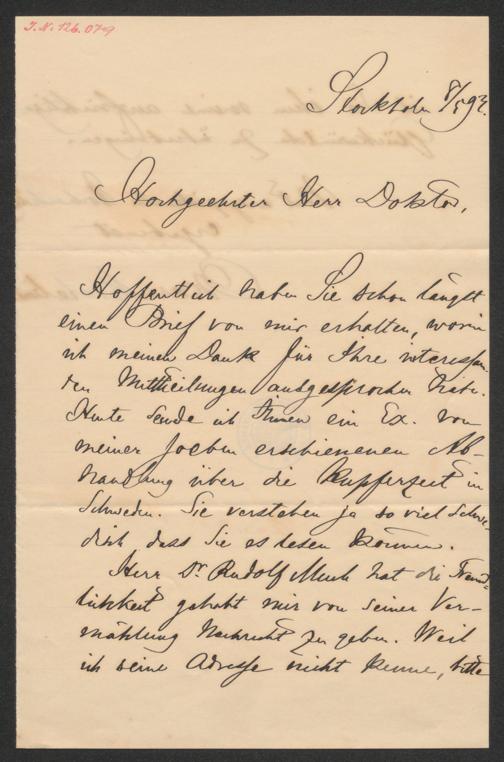 J.N. 126.079
Stockholm 8/5 93.
Hochgeehrter Herr Doktor,
Hoffentlich haben Sie schon längst
einen Brief von mir erhalten, worin
ich meinen Dank für Ihre interessan-
ten Mittheilungen ausgesprochen habe.
Heute sende ich Ihnen ein Ex. von
meiner soeben erschienenen Ab-
handlung über die Kupferzeit in
Schweden. Sie verstehen ja so viel Schwe-
disch dass Sie es lesen können.
Herr Dr. Rudolf Much hat die Freund-
lichkeit gehabt mir von seiner Ver-
mählung Nachricht zu geben. Weil
ich seine Adresse nicht kenne, bitte